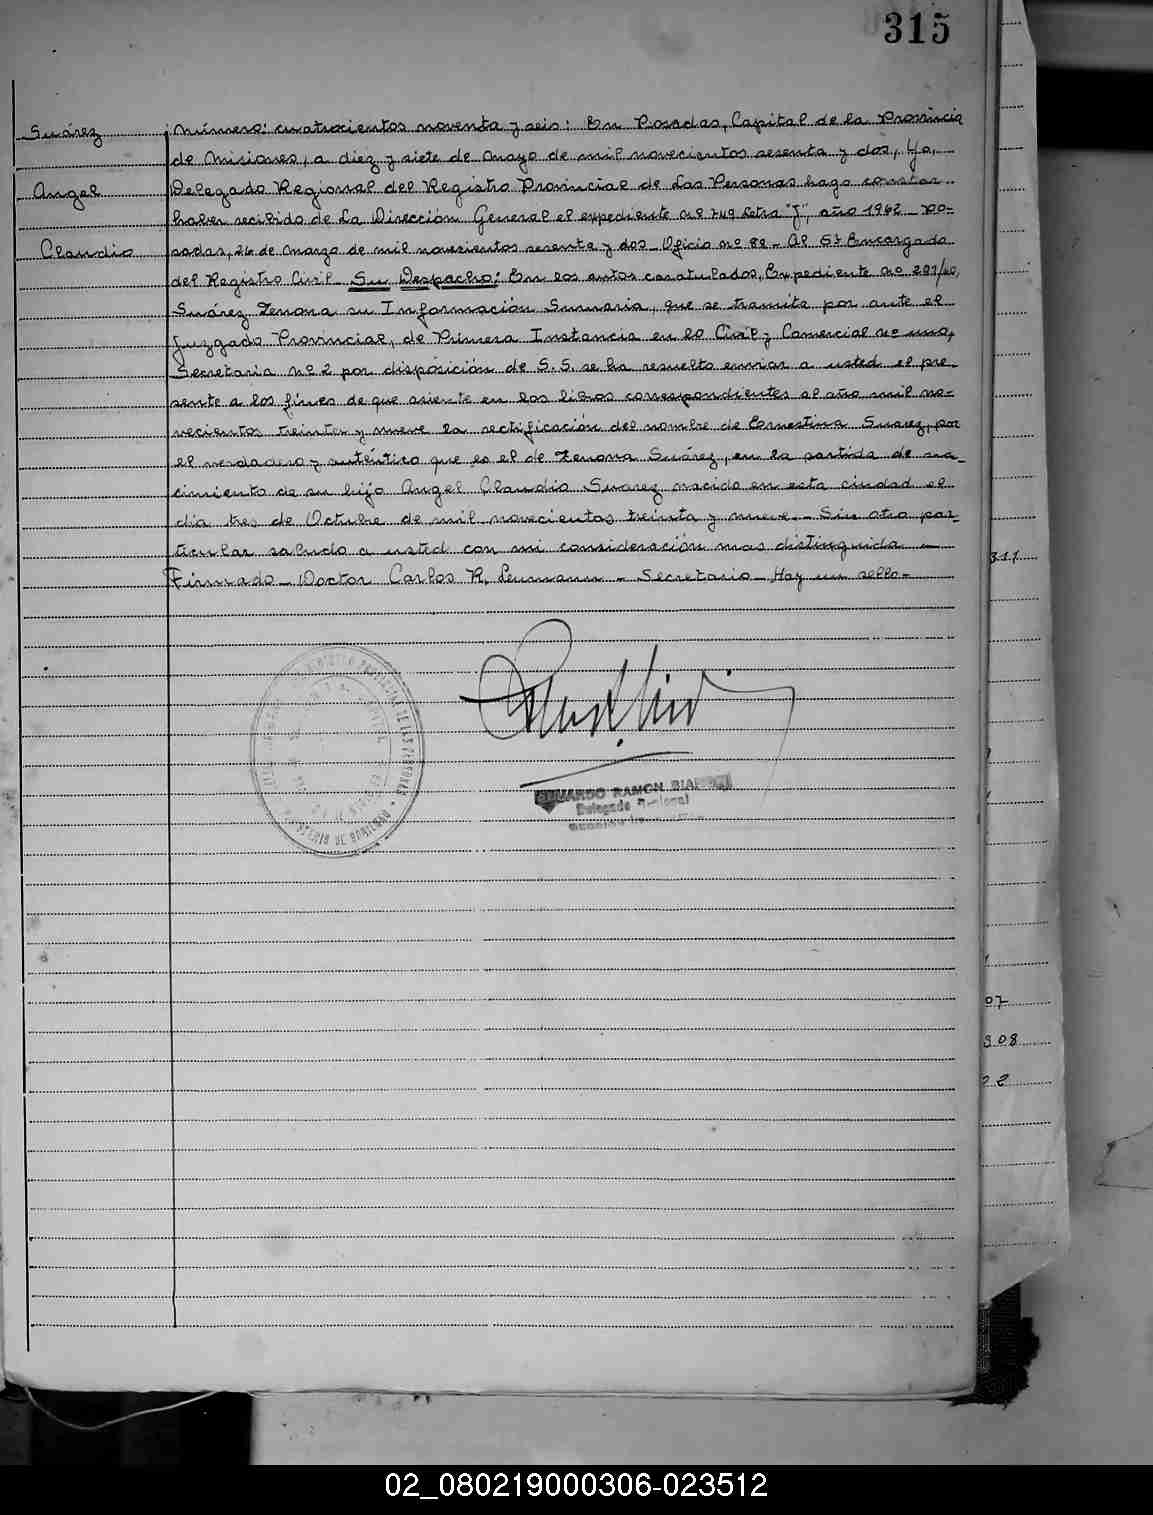 315
Suárez
Angel
Claudio
Número: cuatrocientos noventa y seis: En Posadas, Capital de la Provincia
de Misiones, a diez y siete de Mayo de mil novecientos sesenta y dos, Yo,
Delegado Regional del Registro Provincial de Las Personas hago constar
haber recibido de La Dirección General el expediente nº 749 Letra "J", año 1962 - Po-
sadas, 26 de Marzo de mil novecientos sesenta y dos - Oficio nº 82 - Al Sr Encargado
del Registro Civil - Su Despacho: En los autos caratulados, Expediente nº 291/60,
Suárez Zenona su Información Sumaria, que se tramita por ante el
Juzgado Provincial, de Primera Instancia en lo Civil y Comercial nº uno,
Secretaria nº 2 por disposición de S.S. se ha resuelto enviar a usted el pre-
sente a los fines de que asiente en los libros correspondientes al año mil no-
vecientos treinta y nueve la rectificación del nombre de Ernestina Suarez, por
el verdadero y auténtico que es el de Zenona Suárez, en la partida de na-
cimiento de su hijo Angel Claudio Suarez nacido en esta ciudad el
día tres de Octubre de mil novecientos treinta y nueve. - Sin otro par-
ticular saludo a usted con mi consideración mas distinguida -
Firmado - Doctor Carlos R. Leumann - Secretario - Hay un sello -
EDUARDO RAMON
Delegado Regional
311
07
308
22
02_080219000306-023512